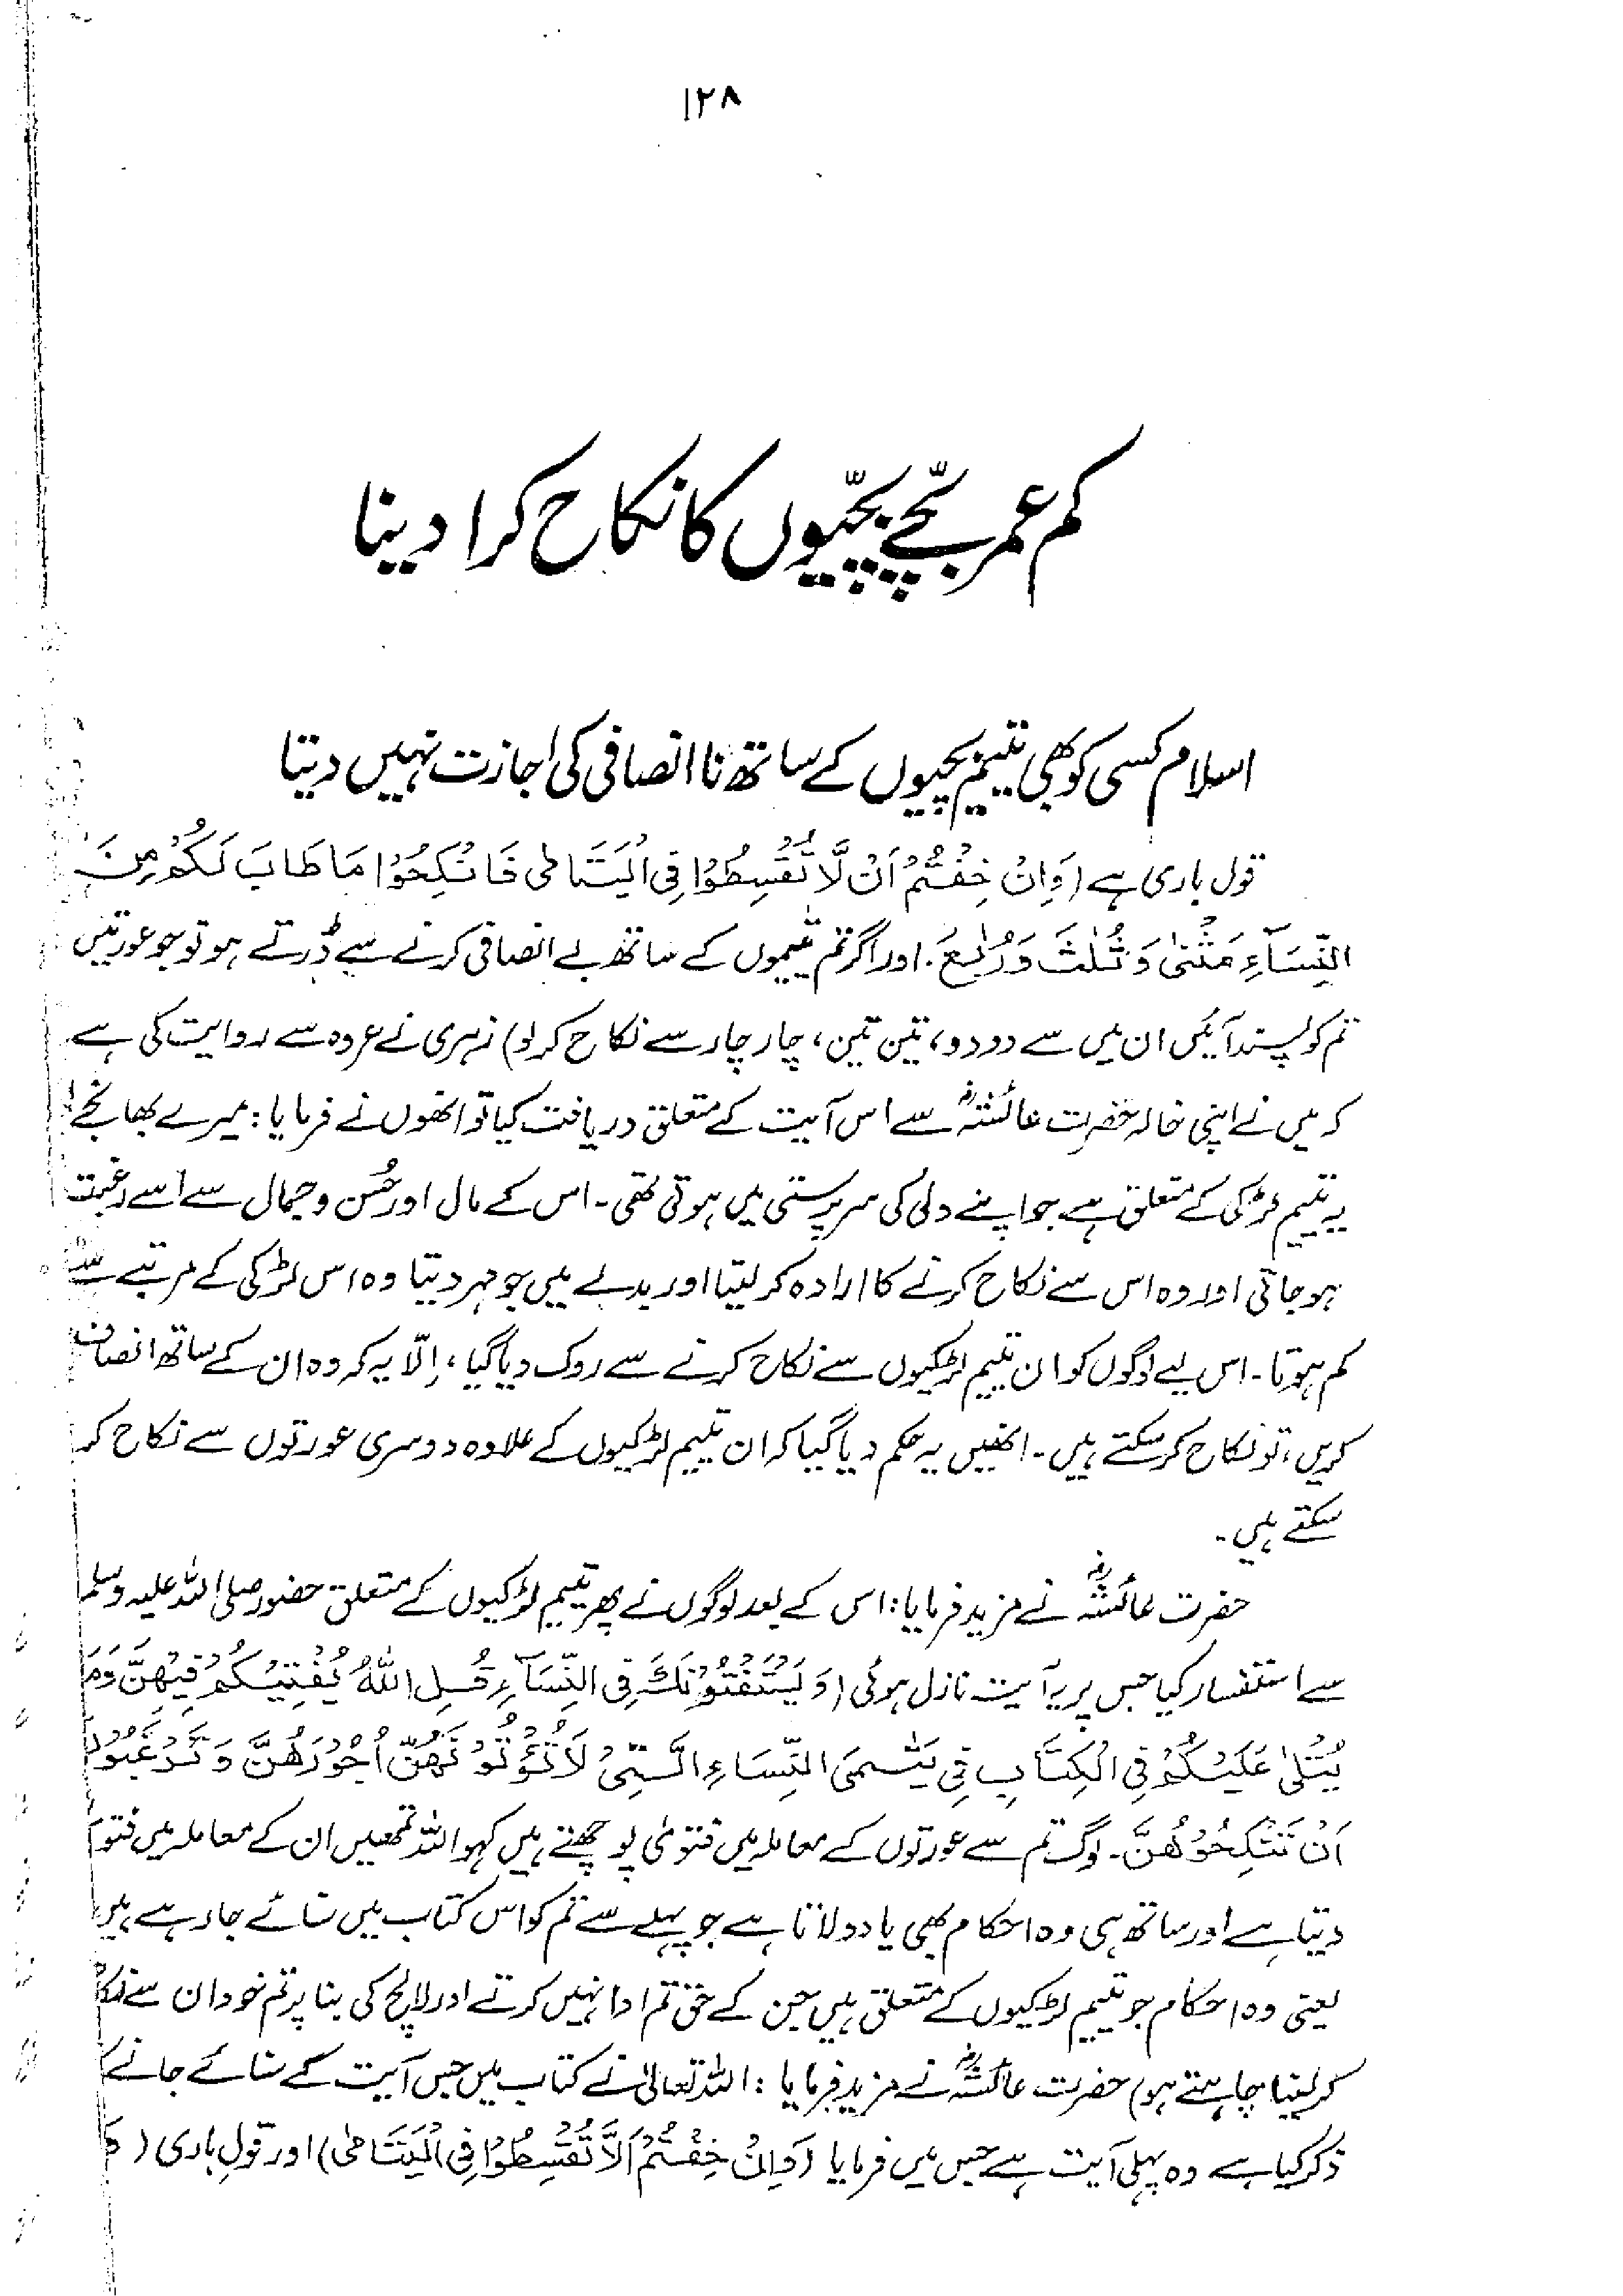 ۱۲۸
کم عمر بچّے بچّیوں کا نکاح کرا دینا
اسلام کسی کو بھی یتیم بچیوں کے ساتھ نا انصافی کی اجازت نہیں دیتا
قول باری ہے (وَاِنْ خِفْتُمْ اَنْ لَّا تُقْسِطُوْا فِی الْیَتَامٰی فَانْکِحُوْا مَا طَابَ لَکُمْ مِنَ
النِّسَآءِ مَثْنٰی وَ ثُلٰثَ وَرُبٰعَ۔ اور اگر تم یتیموں کے ساتھ بے انصافی کرنے سے ڈرتے ہو تو جو عورتیں
تم کو پسند آئیں ان میں سے دو دو، تین تین، چار چار سے نکاح کر لو) زہری نے عروہ سے روایت کی ہے
کہ میں نے اپنی خالہ حضرت عائشہؓ سے اس آیت کے متعلق دریافت کیا تو انھوں نے فرمایا: میرے بھانجے!
یہ یتیم لڑکی کے متعلق ہے جو اپنے ولی کی سرپرستی میں ہوتی تھی۔ اس کے مال اور حُسن و جمال سے اسے رغبت
ہو جاتی اور وہ اس سے نکاح کرنے کا ارادہ کر لیتا اور بدلے میں جو مہر دیتا وہ اس لڑکی کے مرتبے سے
کم ہوتا۔ اس لیے لوگوں کو ان یتیم لڑکیوں سے نکاح کرنے سے روک دیا گیا، اِلّا یہ کہ وہ ان کے ساتھ انصاف
کریں، تو نکاح کر سکتے ہیں۔ انھیں یہ حکم دیا گیا کہ ان یتیم لڑکیوں کے علاوہ دوسری عورتوں سے نکاح کر
سکتے ہیں۔
حضرت عائشہؓ نے مزید فرمایا: اس کے بعد لوگوں نے پھر یتیم لڑکیوں کے متعلق حضور صلی اللہ علیہ وسلم
سے استفسار کیا جس پر یہ آیت نازل ہوئی (وَ یَسْتَفْتُوْنَکَ فِی النِّسَآءِ قُلِ اللّٰہُ یُفْتِیْکُمْ فِیْہِنَّ وَمَا
یُتْلٰی عَلَیْکُمْ فِی الْکِتَابِ فِی یَتٰمَی النِّسَاءِ الّٰتِیْ لَا تُؤْتُوْنَھُنَّ اُجُوْرَھُنَّ وَ تَرْغَبُوْنَ
اَنْ تَنْکِحُوْھُنَّ۔ لوگ تم سے عورتوں کے معاملہ میں فتویٰ پوچھتے ہیں کہو اللہ تمھیں ان کے معاملہ میں فتویٰ
دیتا ہے اور ساتھ ہی وہ احکام بھی یاد دلاتا ہے جو پہلے سے تم کو اس کتاب میں سنائے جا رہے ہیں
یعنی وہ احکام جو یتیم لڑکیوں کے متعلق ہیں جن کے حق تم ادا نہیں کرتے اور لالچ کی بنا پر تم خود ان سے نکاح
کر لینا چاہتے ہو) حضرت عائشہؓ نے مزید فرمایا: اللہ تعالیٰ نے کتاب میں جس آیت کے سنائے جانے کا
ذکر کیا ہے وہ پہلی آیت ہے جس میں فرمایا (وَاِنْ خِفْتُمْ اَلَّا تُقْسِطُوْا فِی الْیَتَامٰی) اور قولِ باری (وَ